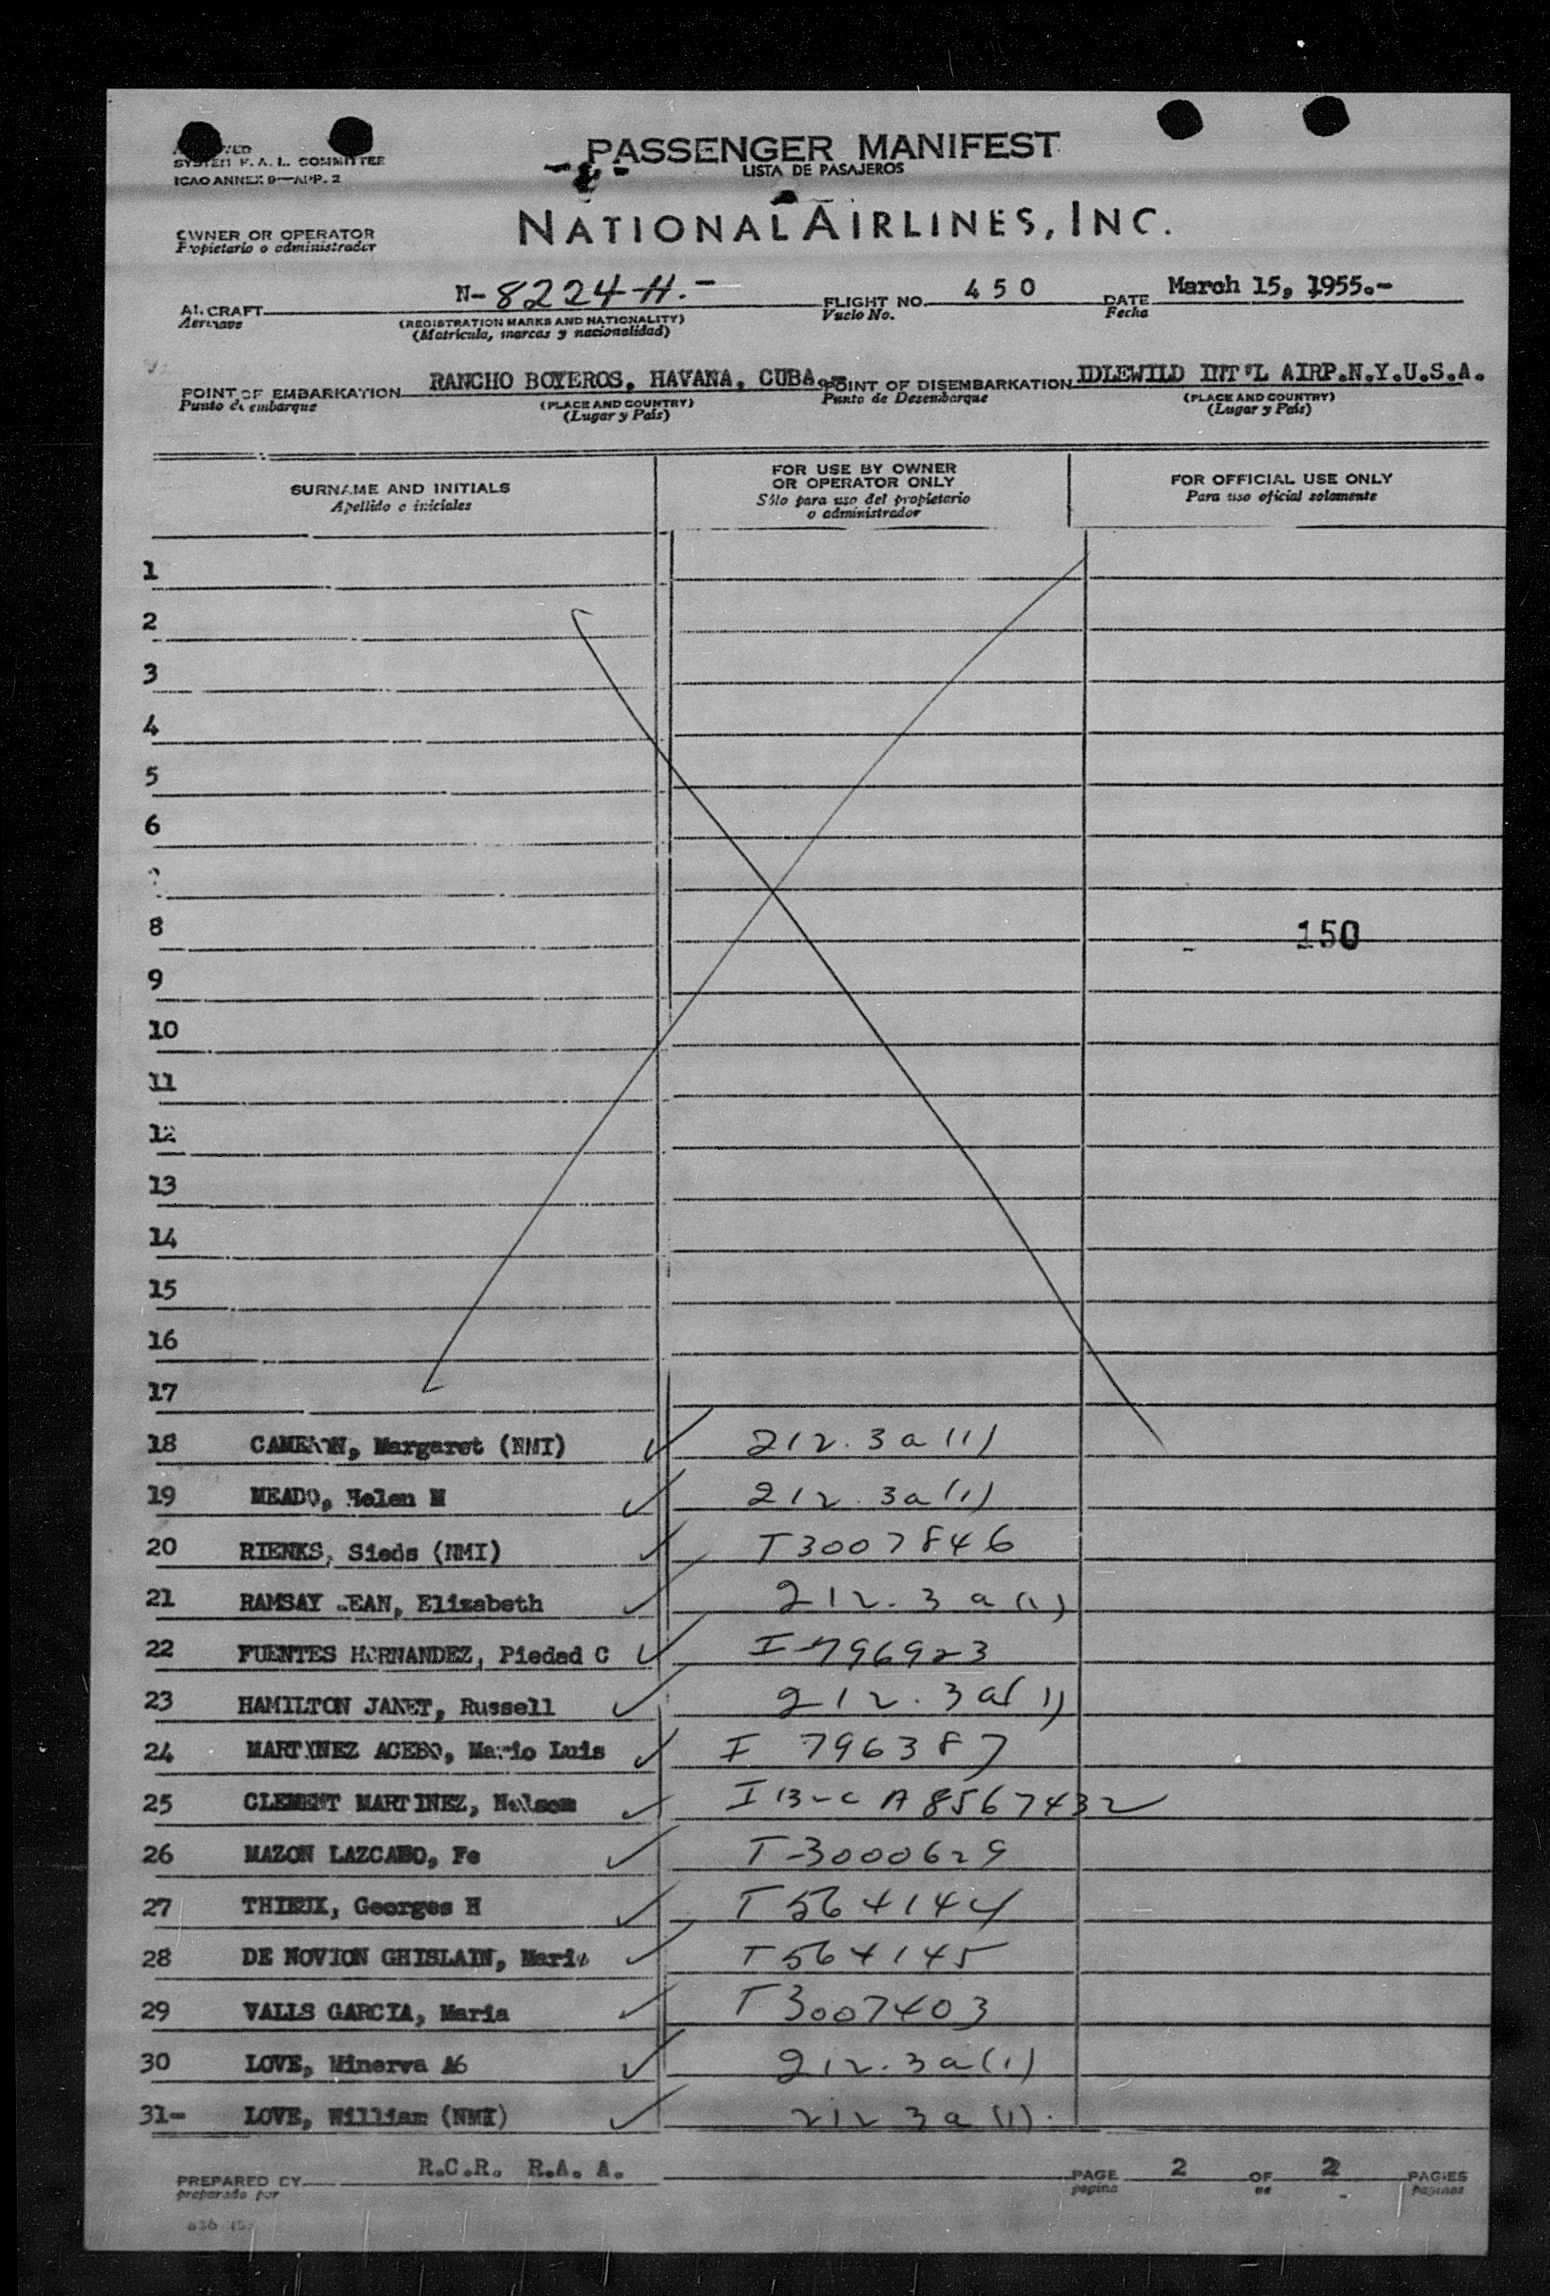 SYSTEM F.A.L. COMMITTEE
ICAO ANNEX 9—APP. 2
PASSENGER MANIFEST
LISTA DE PASAJEROS
OWNER OR OPERATOR
Propietario o administrador
NATIONAL AIRLINES, INC.
AIRCRAFT N-8224-H.-
Aeronave
(REGISTRATION MARKS AND NATIONALITY)
(Matrícula, marcas y nacionalidad)
FLIGHT NO. 450
Vuelo No.
DATE March 15, 1955.-
Fecha
POINT OF EMBARKATION RANCHO BOYEROS, HAVANA, CUBA.-
Punto de embarque
(PLACE AND COUNTRY)
(Lugar y País)
POINT OF DISEMBARKATION IDLEWILD INT'L AIRP.N.Y.U.S.A.
Punto de Desembarque
(PLACE AND COUNTRY)
(Lugar y País)
SURNAME AND INITIALS
Apellido e iniciales
FOR USE BY OWNER
OR OPERATOR ONLY
Sólo para uso del propietario
o administrador
FOR OFFICIAL USE ONLY
Para uso oficial solamente
1
2
3
4
5
6
8 150
9
10
11
12
13
14
15
16
17
18 CAMERON, Margaret (NMI) 212.3a(1)
19 MEADO, Helen M 212.3a(1)
20 RIENKS, Sieds (NMI) T3007846
21 RAMSAY JEAN, Elizabeth 212.3a(1)
22 FUENTES HERNANDEZ, Piedad C I-796923
23 HAMILTON JANET, Russell 212.3a(1)
24 MARTINEZ ACEBO, Mario Luis I 796387
25 CLEMENT MARTINEZ, Nelson I 13-C A8567432
26 MAZON LAZCANO, Fe T-3000629
27 Georges H T564144
28 DE NOVION GHISLAIN, Marie T564145
29 VALLS GARCIA, Maria T3007403
30 LOVE, Minerva 212.3a(1)
31- LOVE, William (NMI) 212 3a(1).
PREPARED BY R.C.R. R.A.A.
preparado por
PAGE 2 OF 2 PAGES
pagina de paginas